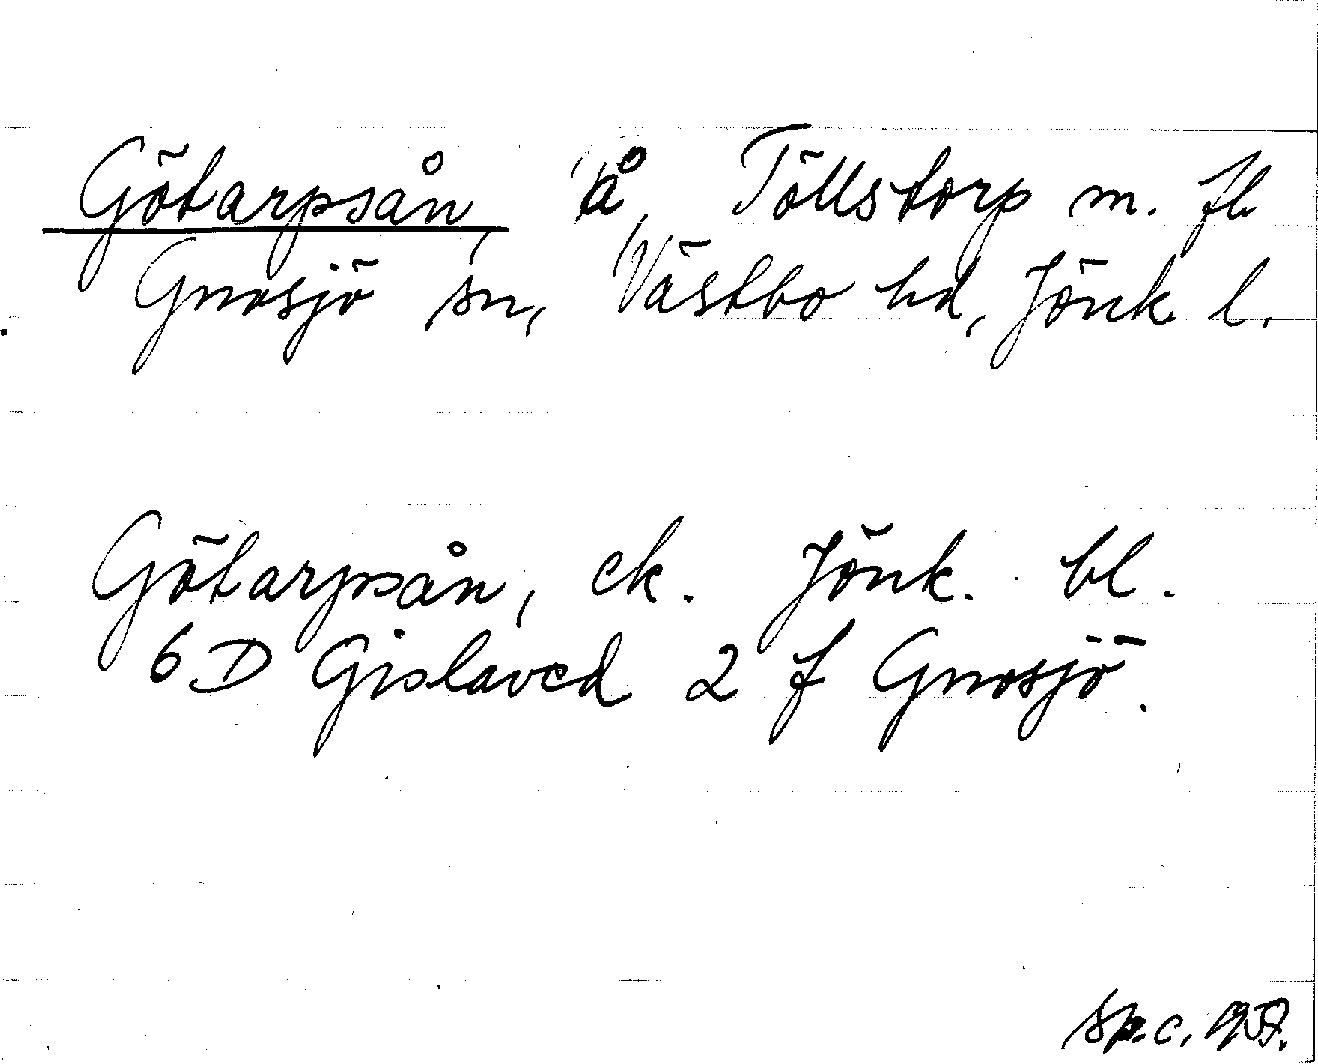 Götarpsån, å, Töllstorp m. fl.
Gnosjö sn, Västbo hd, Jönk l.
Götarpsån, ek. Jönk. bl.
6 D Gislaved 2 f Gnosjö.